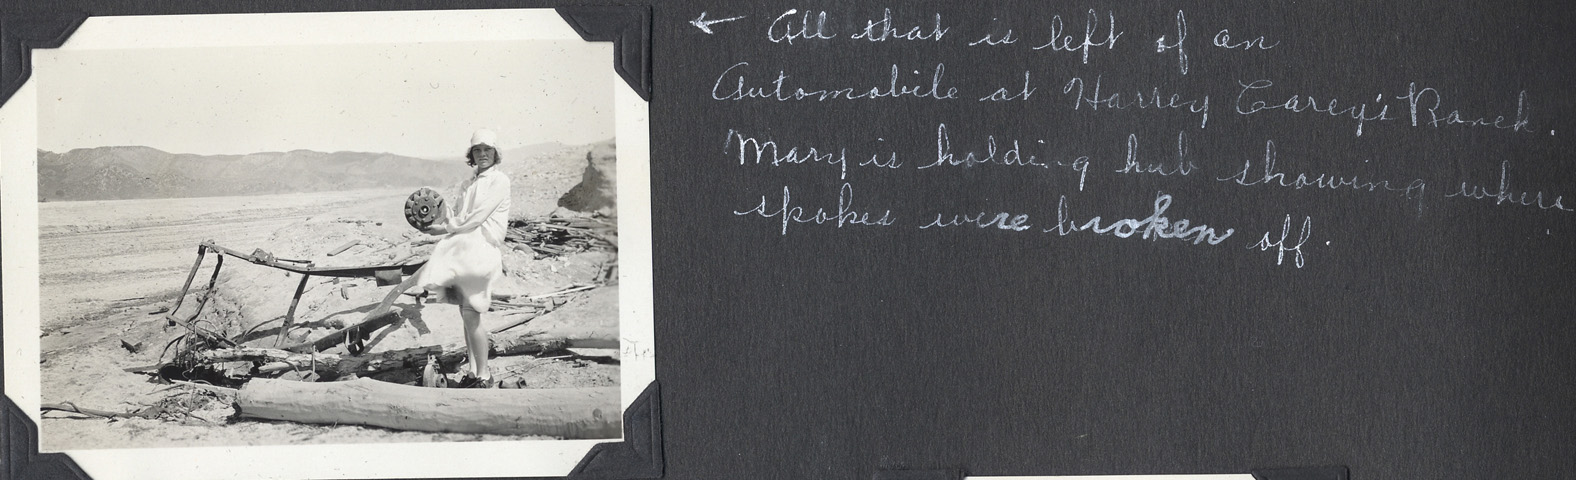 ← All that is left of an
Automobile at Harrey Carey's Ranch.
Mary is holding hub showing where
spokes were broken off.